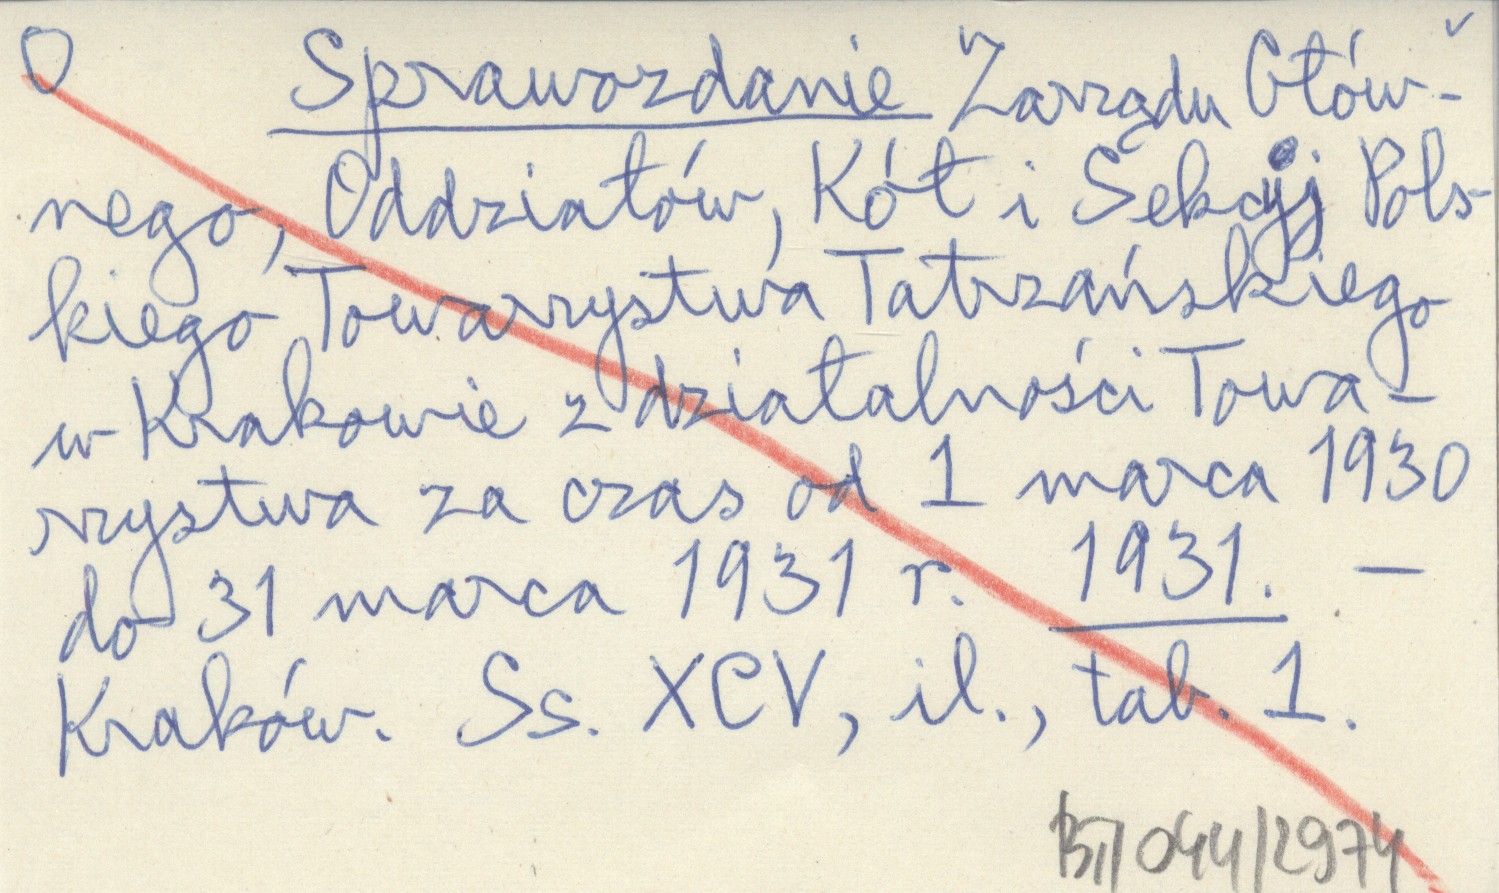 O Sprawozdanie Zarządu Głów-
nego, Oddziałów, Kół i Sekcyj Pols-
kiego Towarzystwa Tatrzańskiego
w Krakowie z działalności Towa-
rzystwa za czas od 1 marca 1930
do 31 marca 1931 r. 1931. —
Kraków. Ss. XCV, il., tab. 1.
044/2974